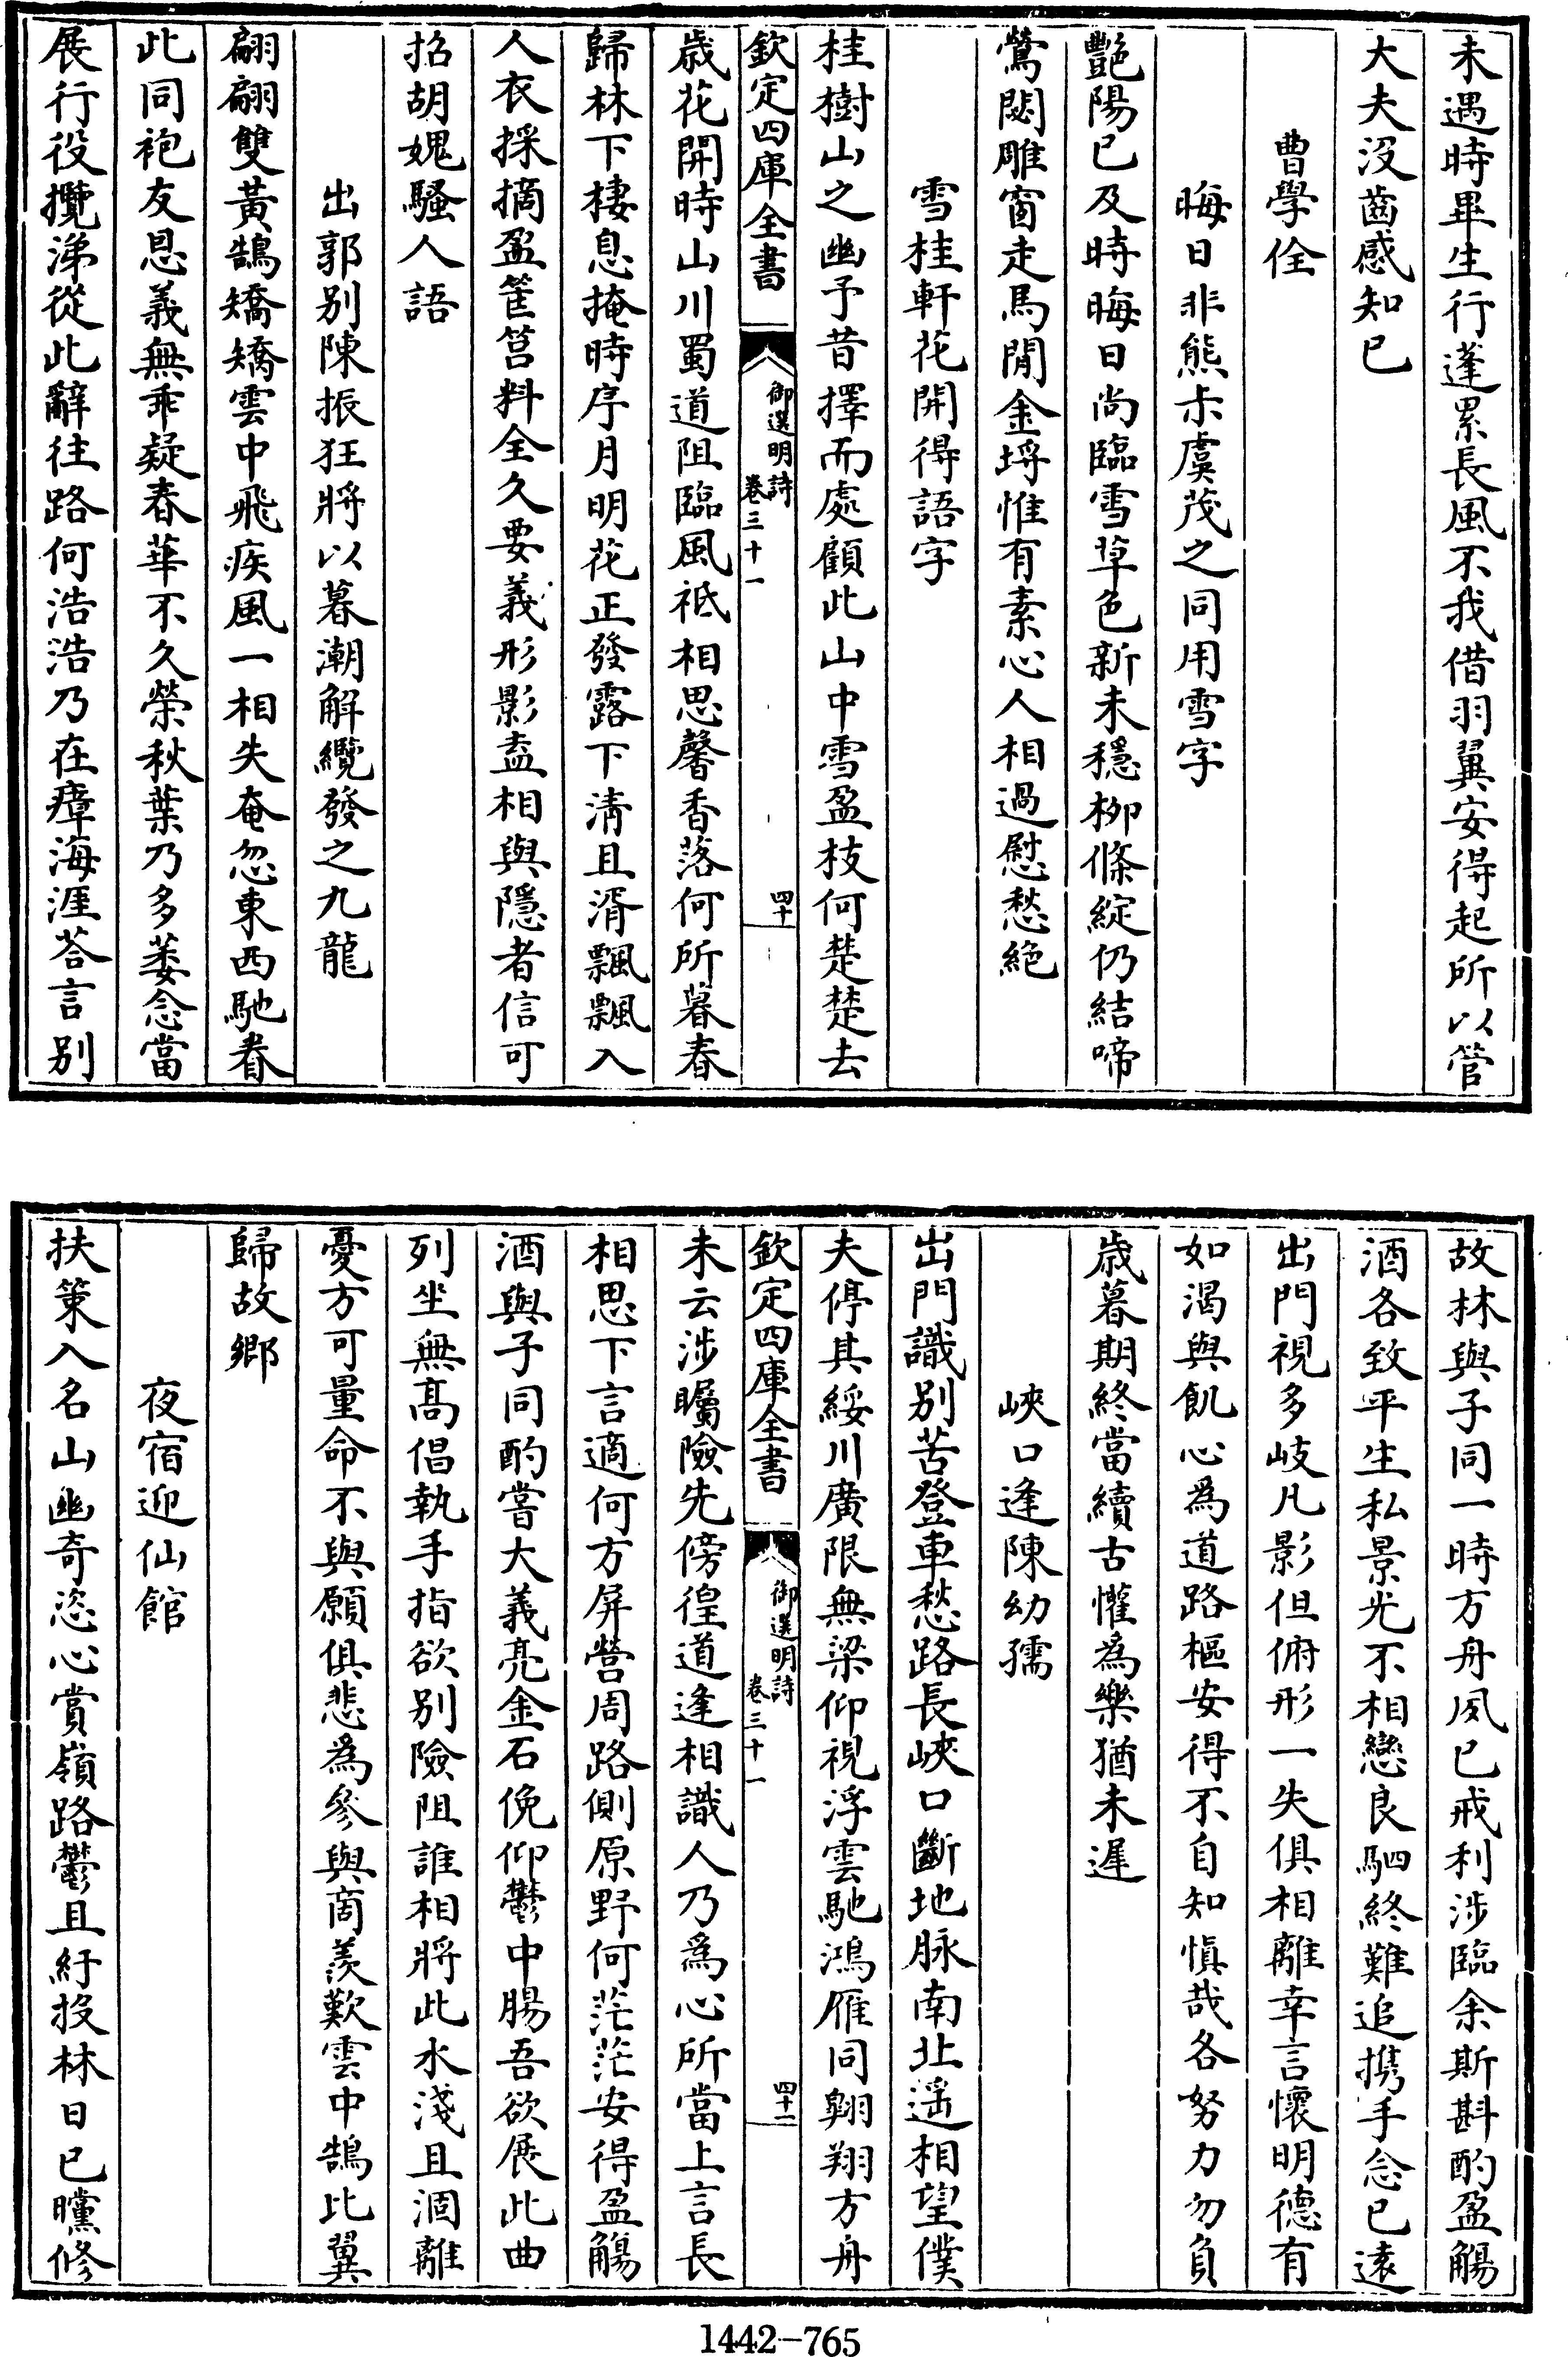 未遇時畢生行蓬累長風不我借羽翼安得起所以管
大夫沒齒感知已
曹學佺
晦日非熊朱虞茂之同用雪字
艷陽已及時晦日尚臨雪草色新未穩栁條綻仍結啼
鶯閟雕窗走馬閒金埒惟有素心人相過慰愁絶
雪桂軒花開得語字
桂樹山之幽予昔擇而處顧此山中雪盈枝何楚楚去
欽定四庫全書
御選明詩
卷三十一
四十
歳花開時山川蜀道阻臨風祇相思馨香落何所暮春
歸林下棲息掩時序月明花正發露下清且湑飄飄入
人衣採摘盈筐筥料全久要義形影盍相與隱者信可
招胡媿騷人語
出郭别陳振狂將以暮潮解纜發之九龍
翩翩雙黃鵠矯矯雲中飛疾風一相失奄忽東西馳眷
此同袍友恩義無乖疑春華不久榮秋葉乃多萎念當
展行役攬涕從此辭往路何浩浩乃在瘴海涯荅言别
故林與子同一時方舟夙已戒利涉臨余斯斟酌盈觴
酒各致平生私景光不相戀良駟終難追携手念已遠
出門視多岐凡影但俯形一失俱相離幸言懷明德有
如渴與飢心為道路樞安得不自知愼哉各努力勿負
歳暮期終當續古懽為樂猶未遲
峽口逢陳幼孺
出門識别苦登車愁路長峽口斷地脉南北遥相望僕
夫停其綏川廣限無梁仰視浮雲馳鴻雁同翺翔方舟
欽定四庫全書
御選明詩
卷三十一
四十一
未云涉矚險先傍徨道逢相識人乃為心所當上言長
相思下言適何方屏營周路側原野何茫茫安得盈觴
酒與子同酌嘗大義亮金石俛仰鬱中腸吾欲展此曲
列坐無髙倡執手指欲别險阻誰相將此水淺且涸離
憂方可量命不與願俱悲為參與商羨歎雲中鵠比翼
歸故鄉
夜宿迎仙館
扶策入名山幽奇恣心賞嶺路鬱且紆投林日已曭修
1442—765